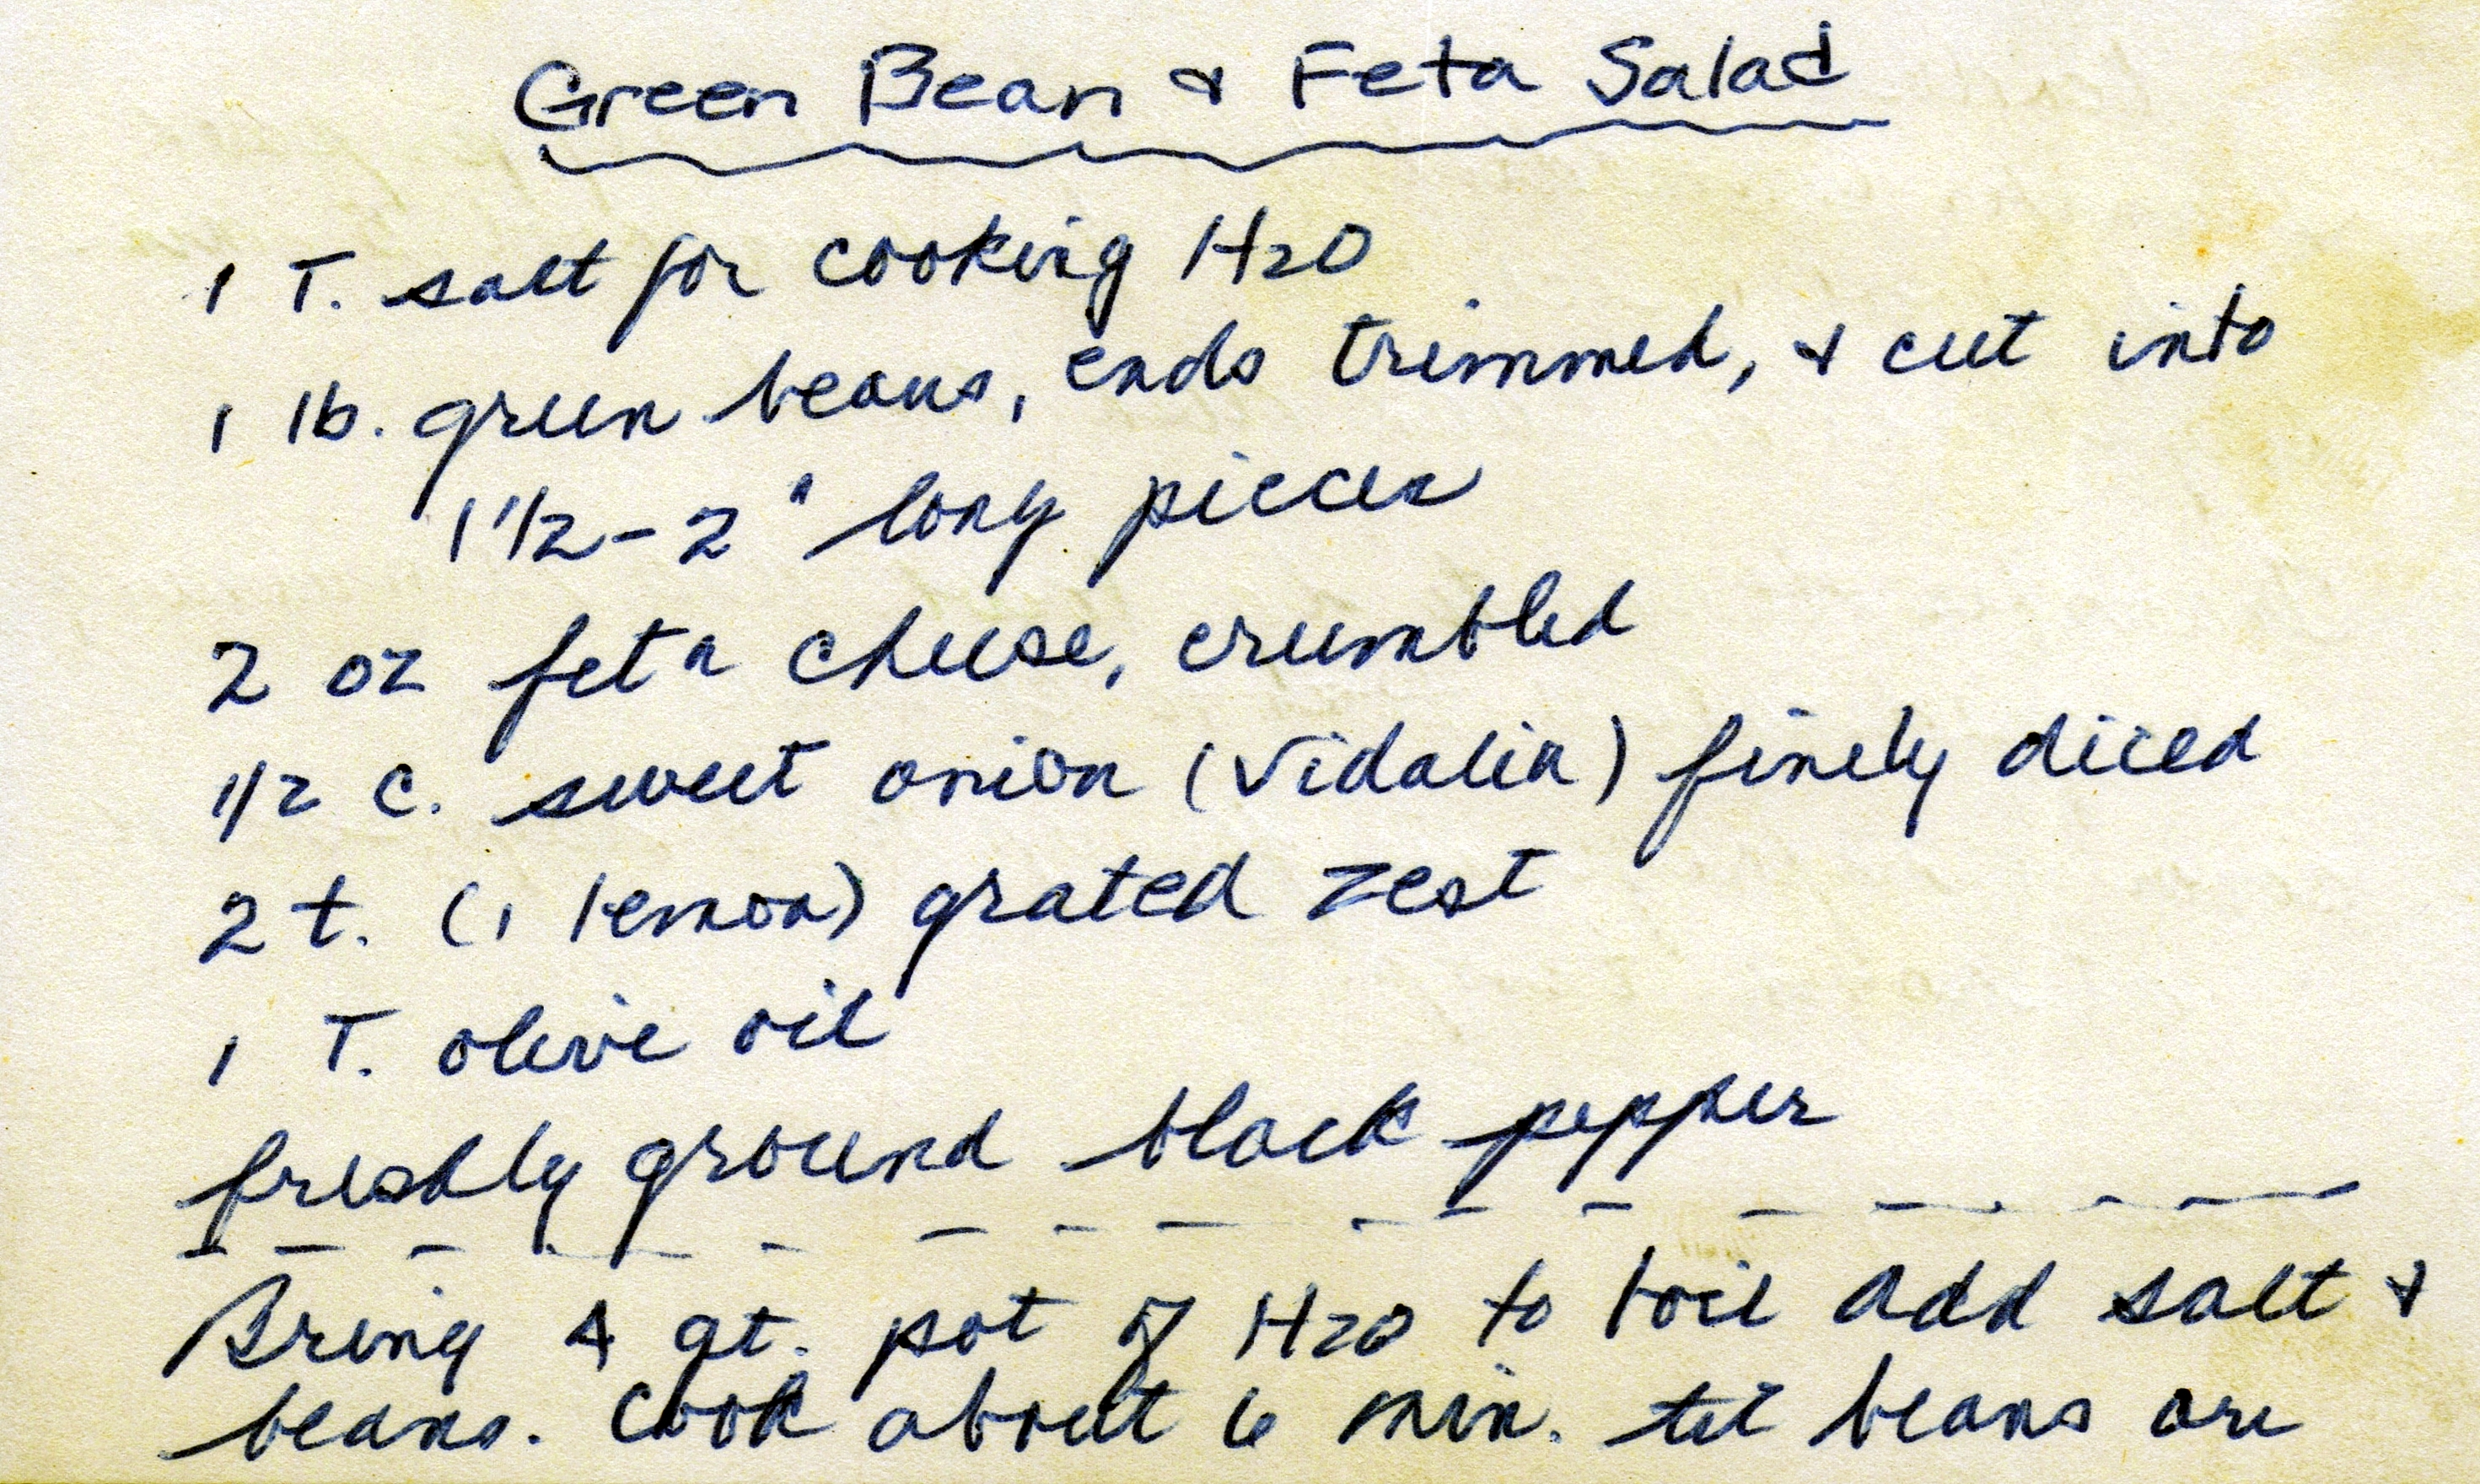 Green Bean & Feta Salad
1 T. salt for cooking H2O
1 lb. green beans, ends trimmed, & cut into
1 1/2 - 2" long pieces
2 oz feta cheese, crumbled
1/2 c. sweet onion (Vidalia) finely diced
2 t. (1 lemon) grated zest
1 T. olive oil
freshly ground black pepper
Bring 4 qt. pot of H2O to boil add salt &
beans. Cook about 6 min. til beans are